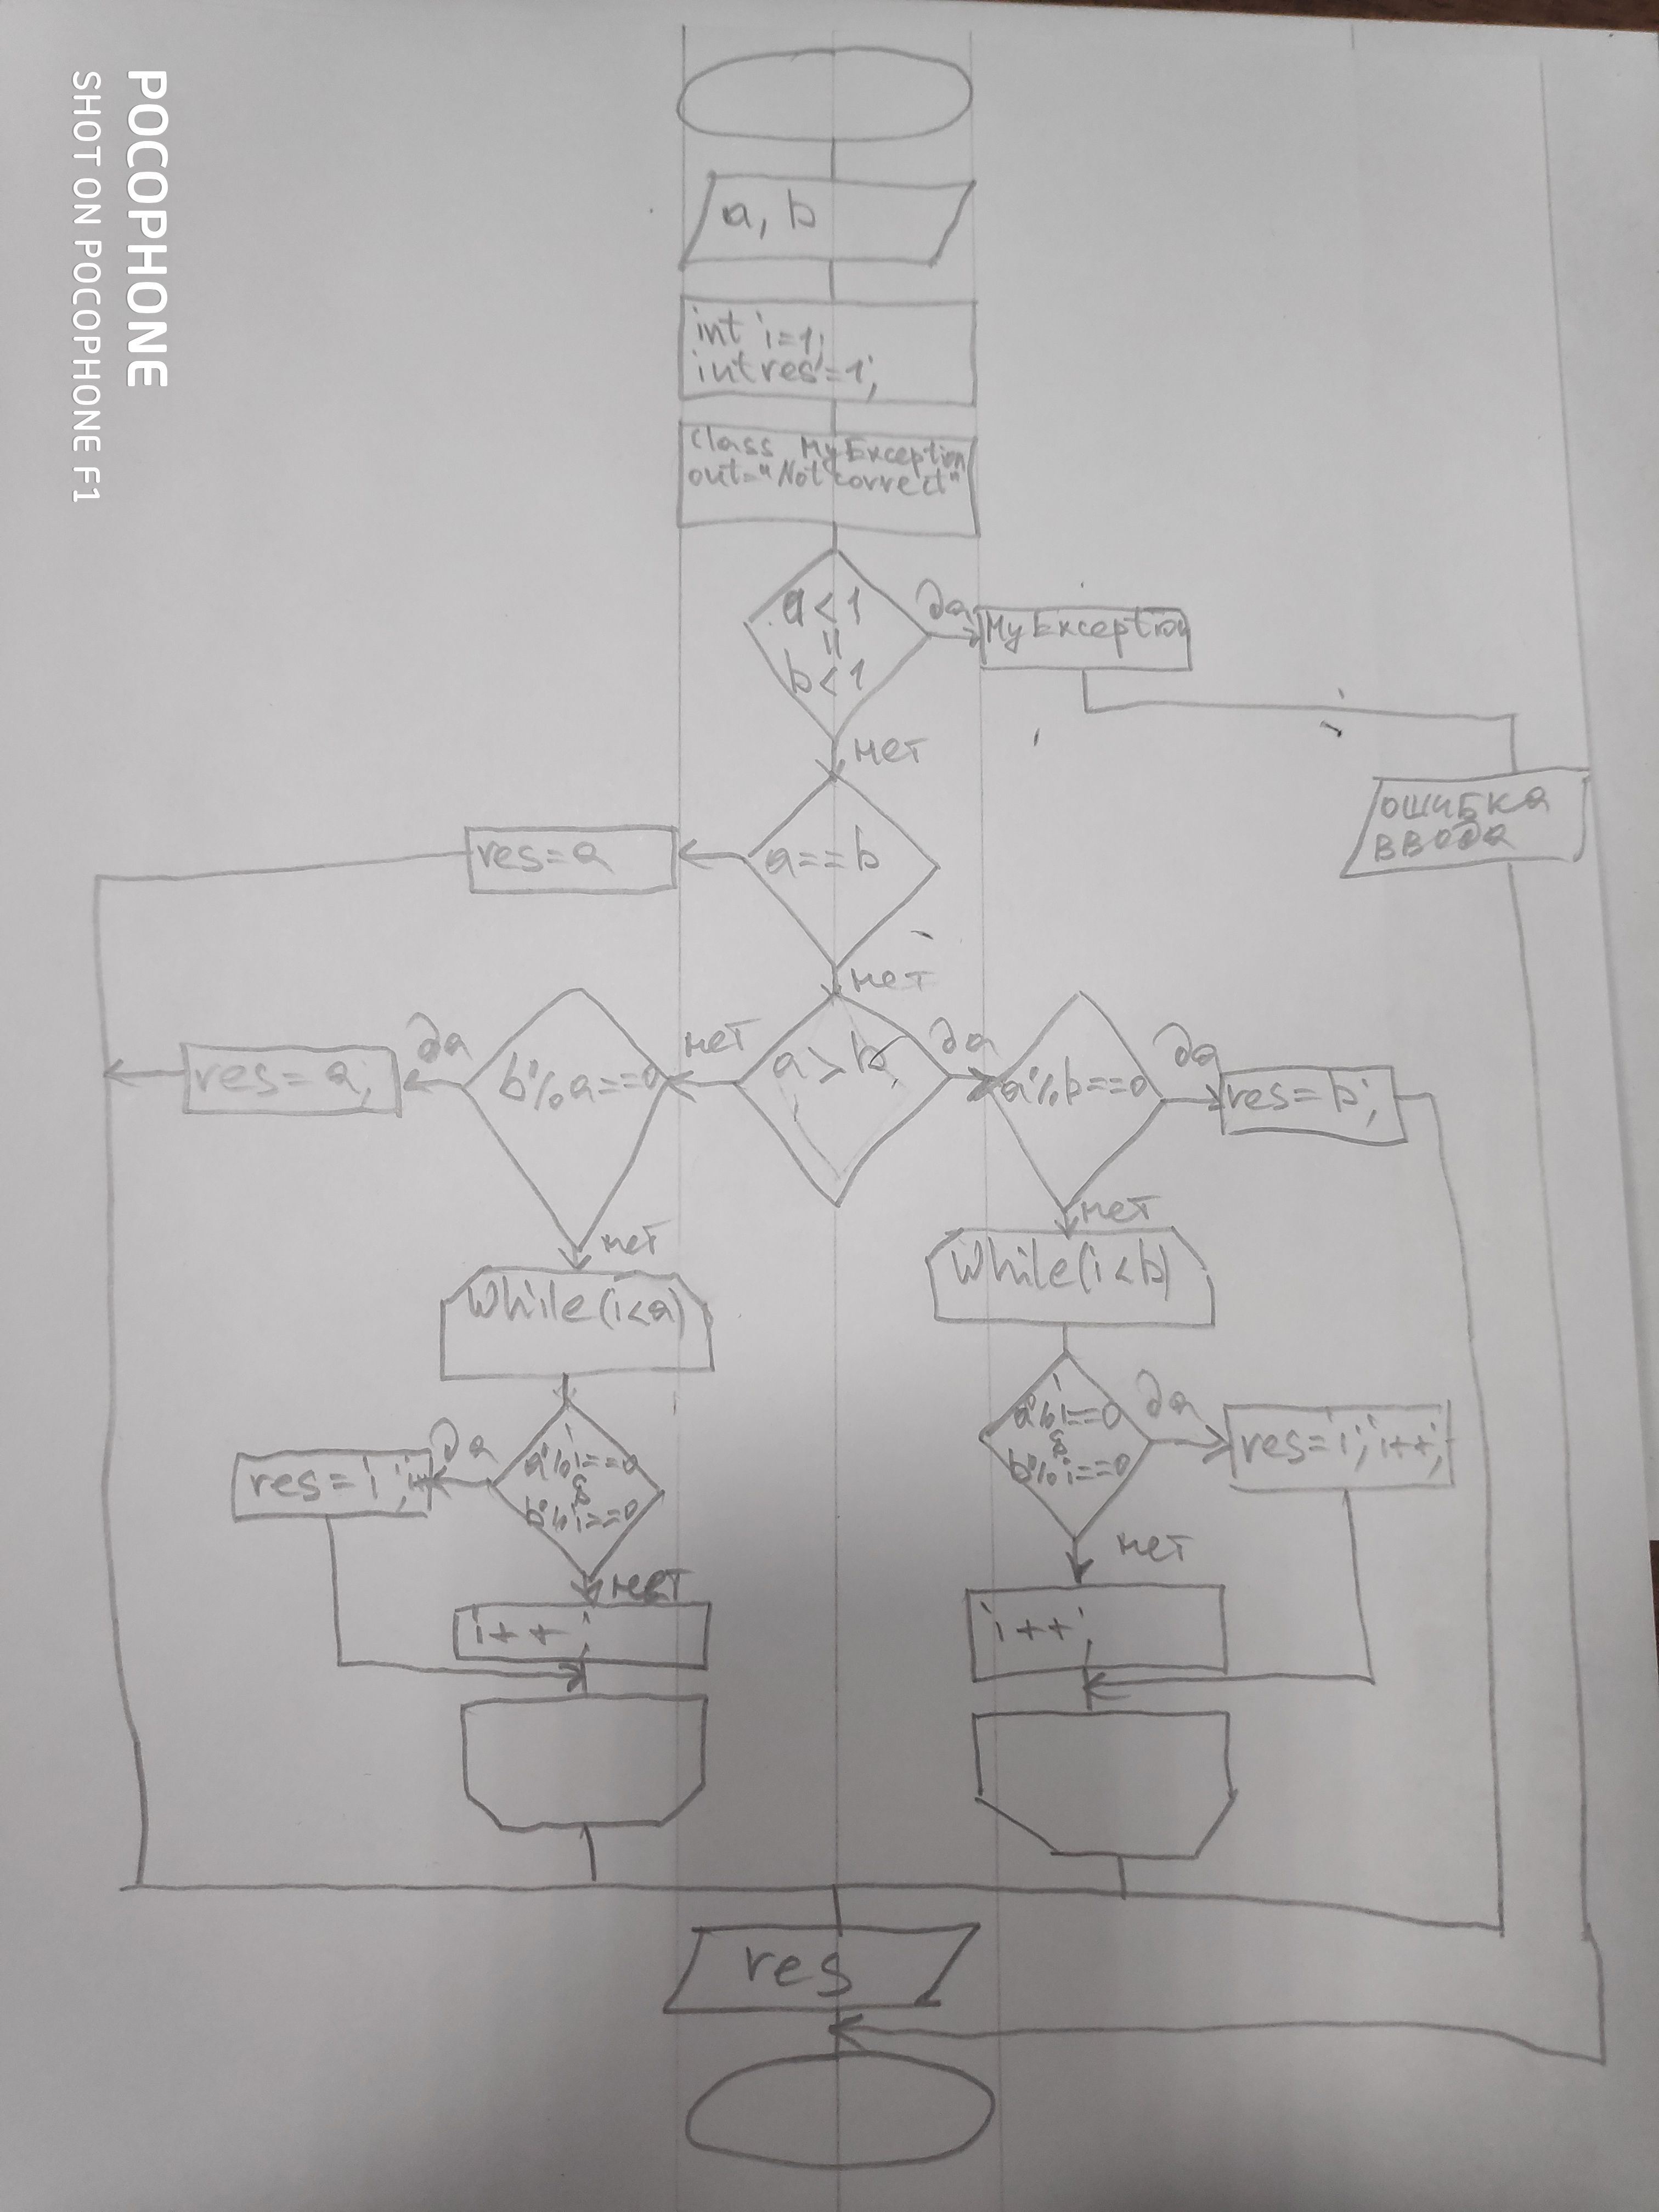 POCOPHONE
SHOT ON POCOPHONE F1
a, b
int i=1;
int res=1;
class MyException
out="Not correct"
a<1
||
b<1
да
MyException
нет
ошибка
ввода
a==b
res=a
нет
a>b
нет
да
b%a==0
да
res=a;
a%b==0
да
res=b;
нет
нет
While(i<a)
While(i<b)
a%i==0
&
b%i==0
да
res=i;
a%i==0
&
b%i==0
да
res=i;i++;
нет
нет
i++;
i++;
res